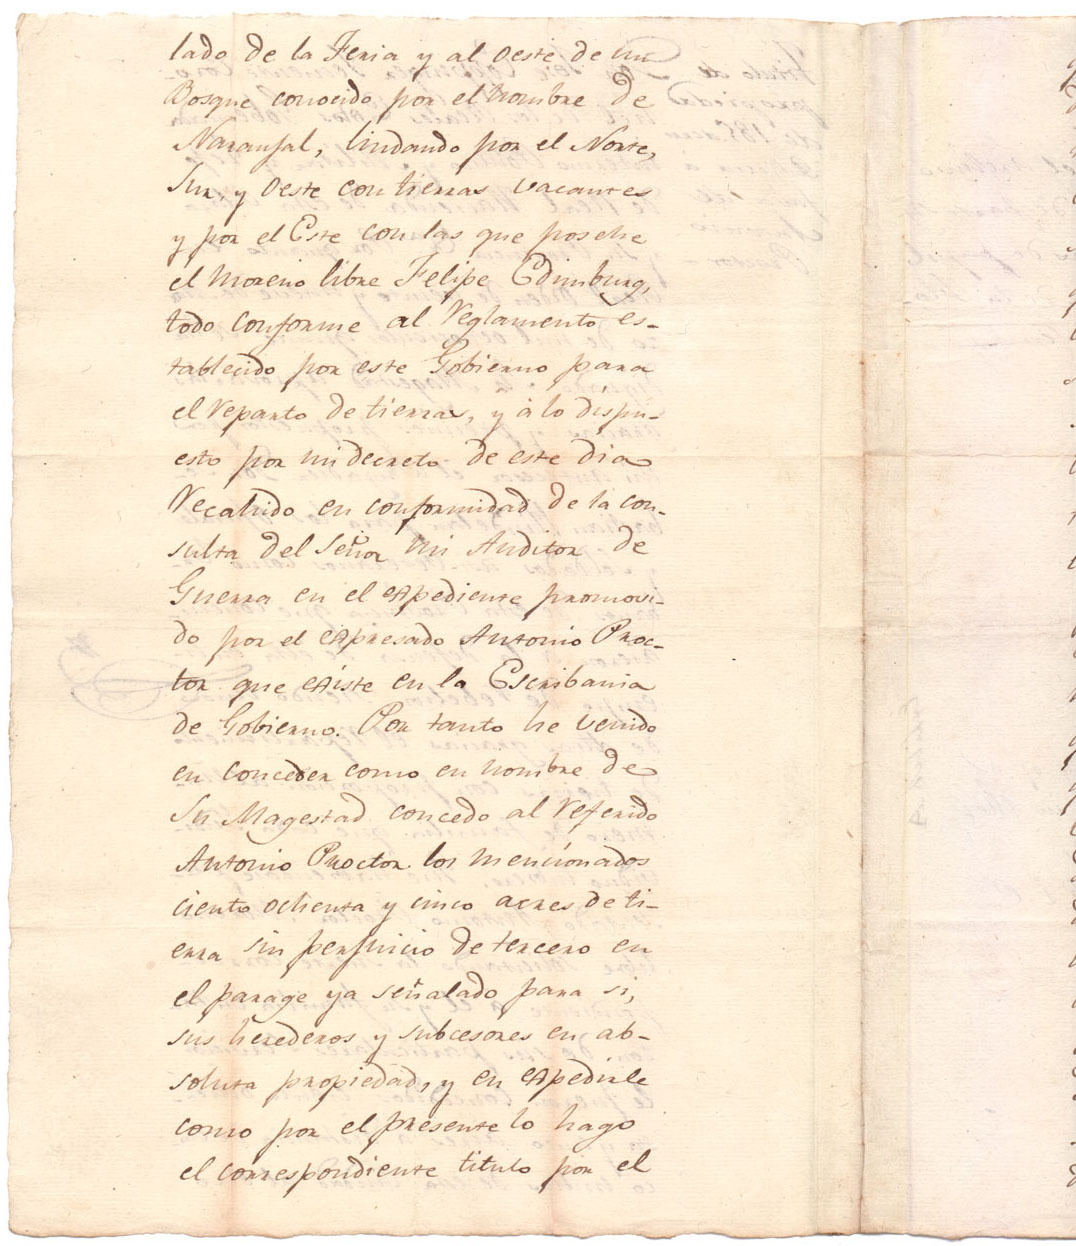 lado de la Feria y al oeste de un
Bosque conocido por el nombre de
Naranjal, lindando por el Norte,
Sur, y oeste con tierras vacantes
y por el Este con las que posehe
el moreno libre Felipe Edimburg,
todo conforme al Reglamento es-
tablecido por este Gobierno para
el Reparto de tierras, y à lo dispu-
esto por mi decreto de este dia
Recahido en conformidad de la con-
sulta del Señor mi Auditor de
Guerra en el expediente promovi-
do por el expresado Antonio Proc-
tor que existe en la Escribania
de Gobierno. Por tanto he venido
en conceder como en nombre de
Su Magestad concedo al Referido
Antonio Proctor los mencionados
ciento ochenta y cinco acres de ti-
erra sin perjuicio de tercero en
el parage ya señalado para si,
sus herederos y subcesores en ab-
soluta propiedad, y en expedirle
como por el presente lo hago
el correspondiente titulo por el